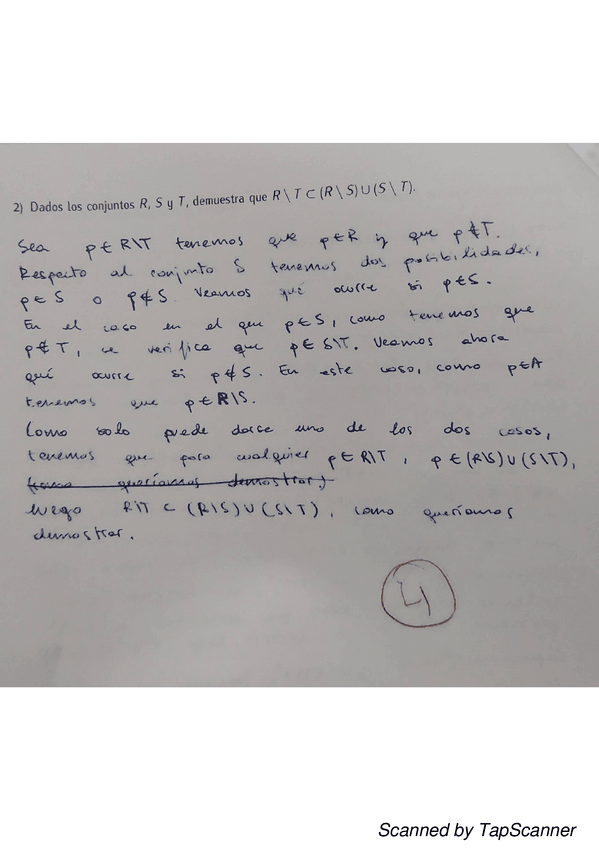 2) Dados los conjuntos R, S y T, demuestra que R \ T ⊂ (R \ S) ∪ (S \ T).
Sea p ∈ R\T tenemos que p∈R y que p∉T.
Respecto al conjunto S tenemos dos posibilidades,
p∈S o p∉S. Veamos qué ocurre si p∈S.
En el caso en el que p∈S, como tenemos que
p∉T, se verifica que p∈S\T. Veamos ahora
qué ocurre si p∉S. En este caso, como p∈A
tenemos que p∈R\S.
Como solo puede darse uno de los dos casos,
tenemos que para cualquier p∈R\T, p∈(R\S)∪(S\T),
(como queríamos demostrar)
luego R\T ⊂ (R\S)∪(S\T), como queríamos
demostrar.
4
Scanned by TapScanner